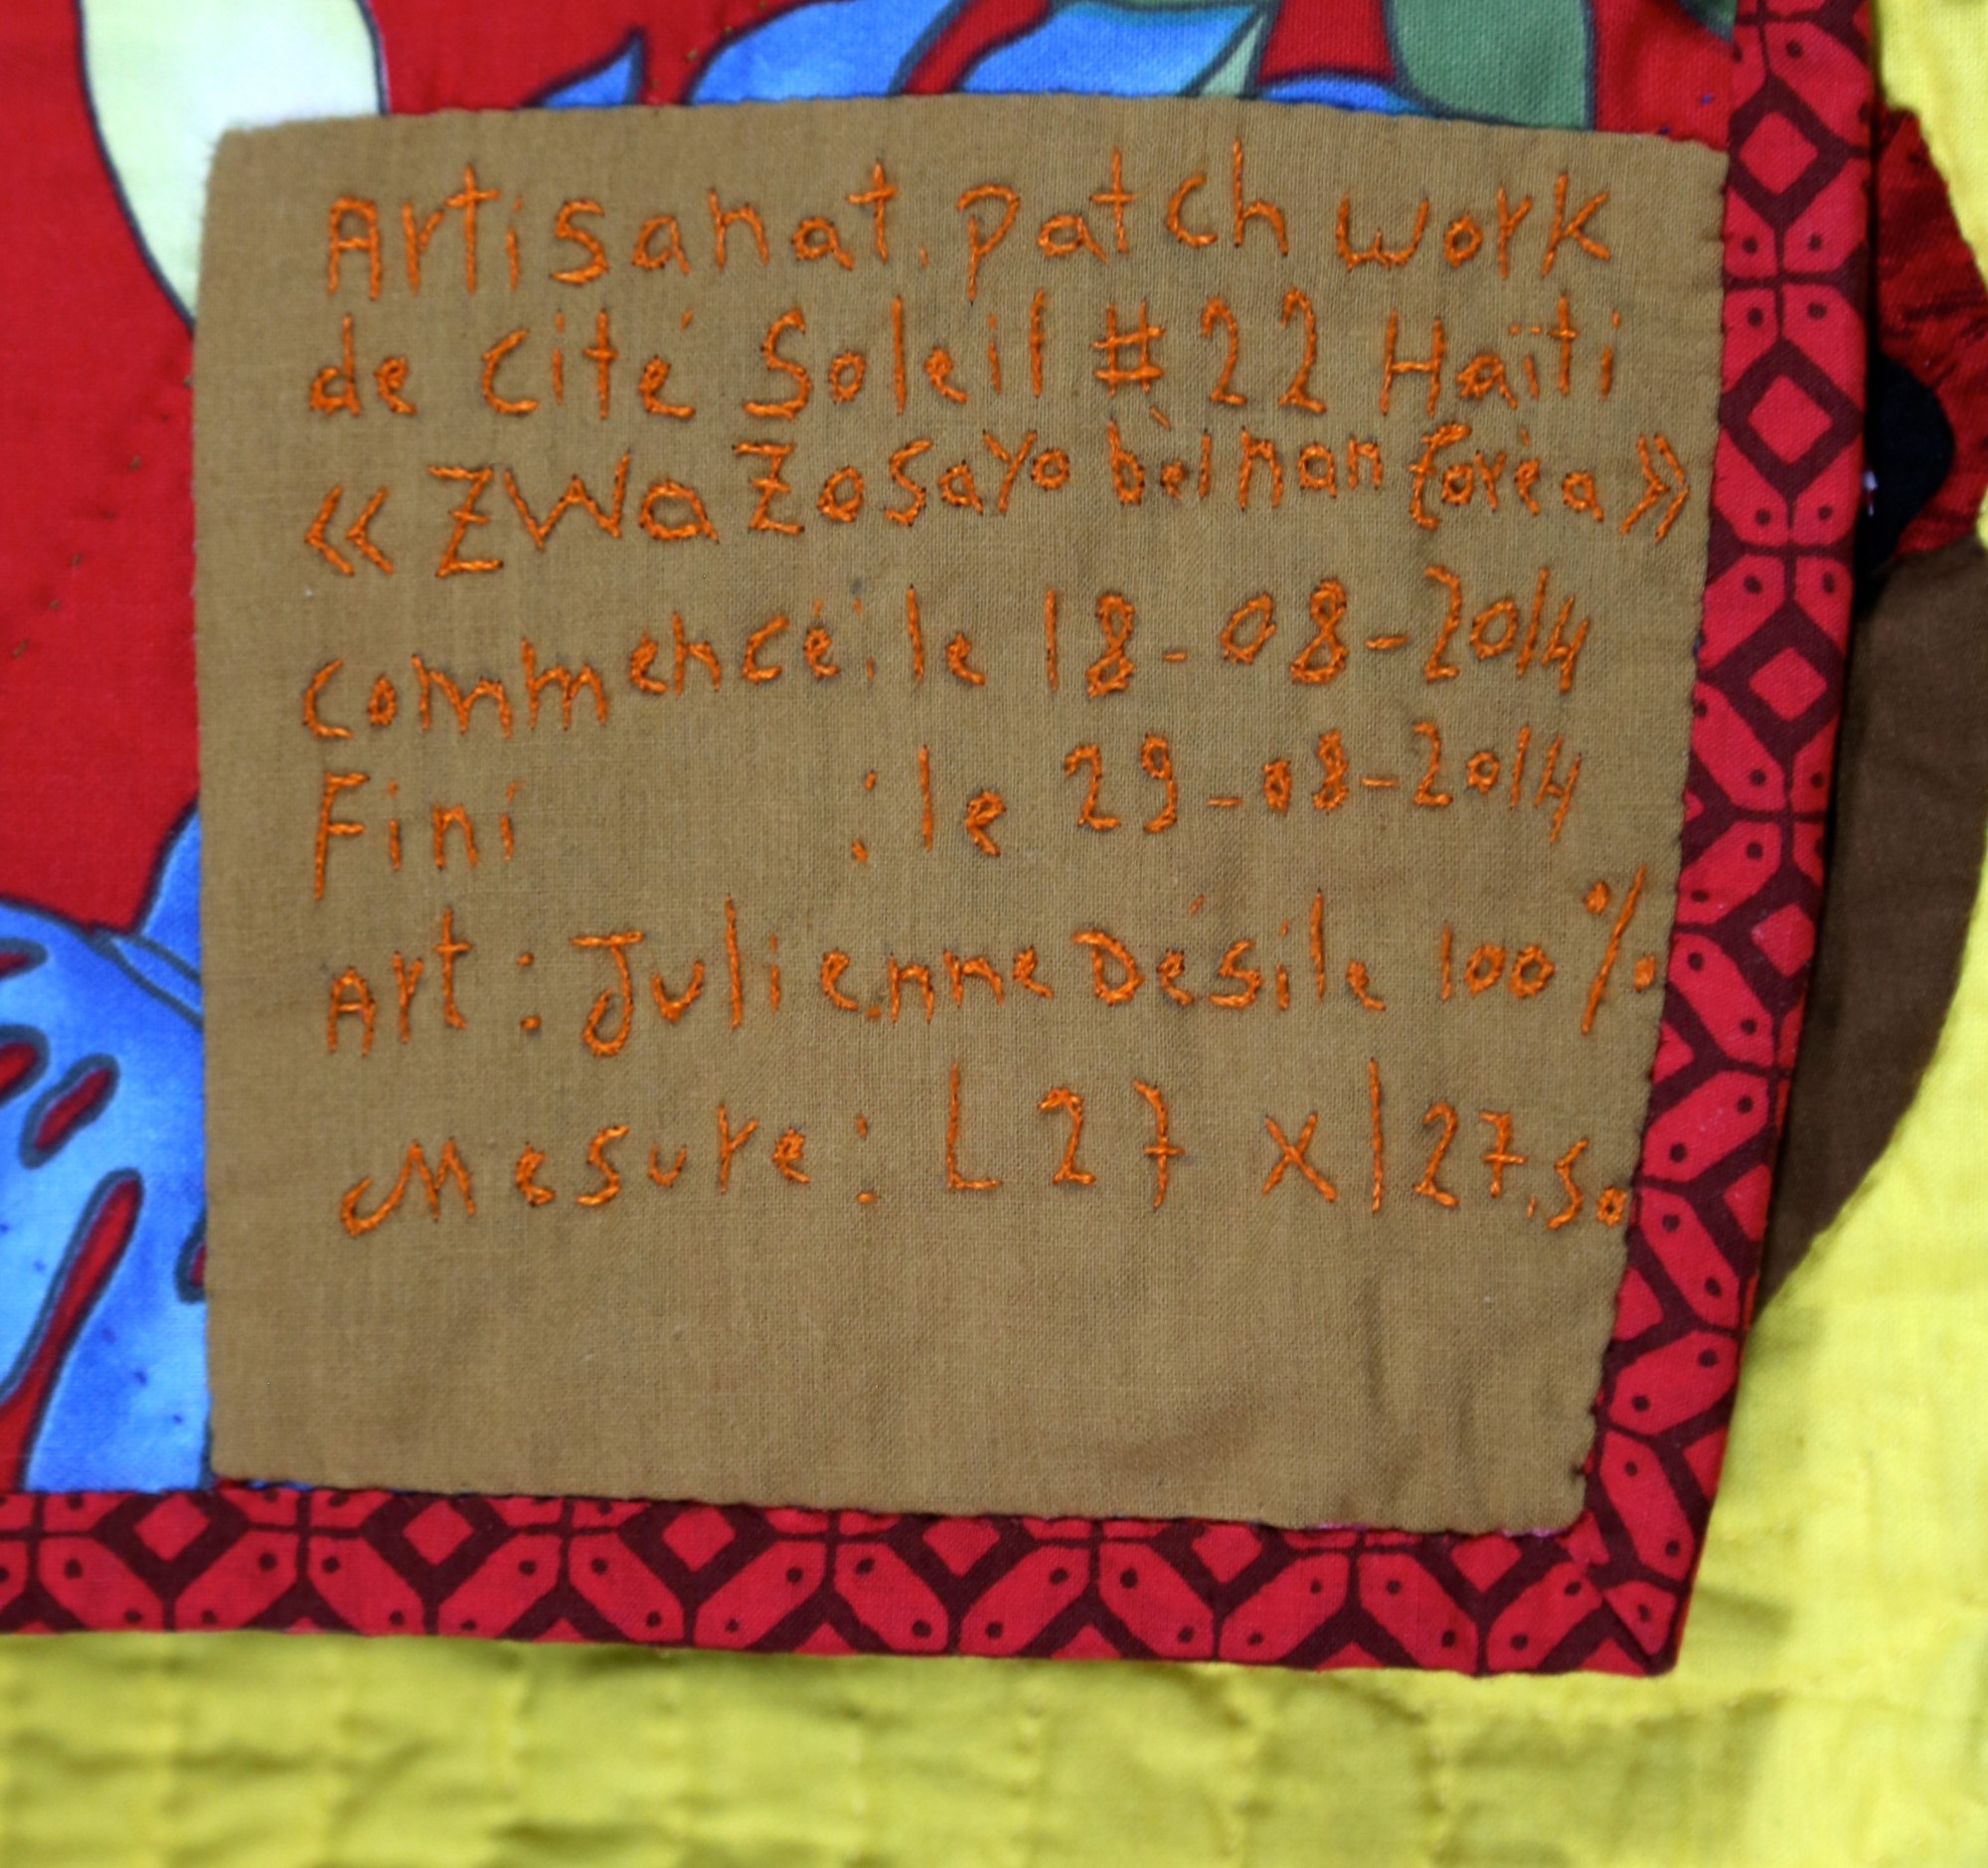 Artisanat. patch work
de cité Soleil #22 Haïti
« ZWa Zosayo bèl nan forèa »
commencé : le 18-08-2014
Fini : le 29-08-2014
Art : Julienne Désile 100%
Mesure : L 27 x l 27,50